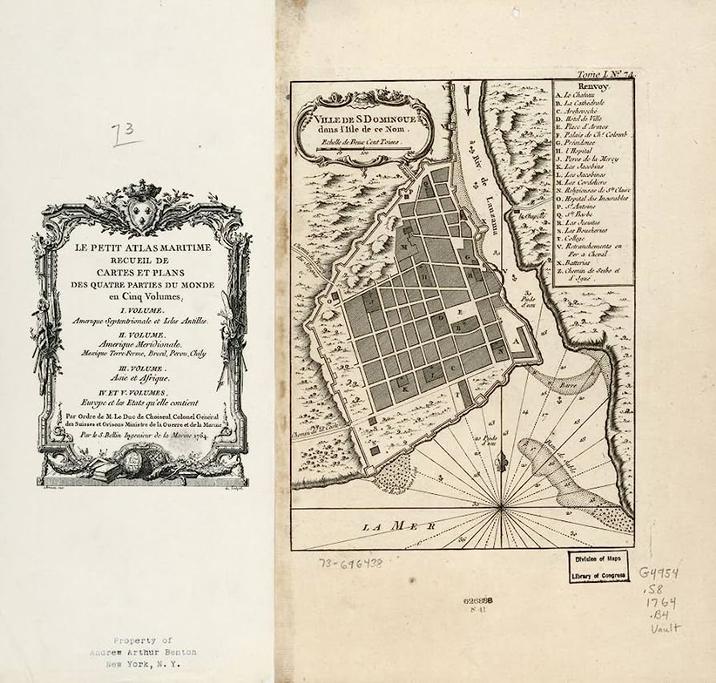 73
LE PETIT ATLAS MARITIME
RECUEIL DE
CARTES ET PLANS
DES QUATRE PARTIES DU MONDE
en Cinq Volumes,
I. VOLUME.
Amerique Septentrionale et Isles Antilles.
II. VOLUME.
Amerique Meridionale.
Mexique Terre-Ferme, Bresil, Perou, Chily
III. VOLUME.
Asie et Afrique.
IV. ET V. VOLUMES.
Europe et les Etats qu'elle contient
Par Ordre de M. Le Duc de Choiseul, Colonel Général
des Suisses et Grisons Ministre de la Guerre et de la Marine
Par le S. Bellin Ingenieur de la Marine 1764.
Property of
Andrew Arthur Benton
New York, N. Y.
Tome I. No. 74.
VILLE DE S. DOMINGUE
dans l'Isle de ce Nom.
Echelle de Deux Cent Toises.
Renvoy.
A. Le Chateau
B. La Cathédrale
C. Archevesché
D. Hotel de Ville
E. Place d'Armes
F. Palais de Chr. Colomb
G. Présidence
H. l'Hopital
J. Peres de la Mercy
K. Les Jacobins
L. Les Jacobines
M. Les Cordeliers
N. Religieuses de Ste Claire
O. Hopital des Incurables
P. St. Antoine
Q. Ste Barbe
R. Les Jesuites
S. Les Boucheries
T. College
V. Retranchements en
Fer a Cheval
X. Batteries
Z. Chemin de
Riv. de
Barre
20 Pieds
d'eau
LA MER
73-696438
Division of Maps
Library of Congress
G4954
.S8
1764
.B4
Vault